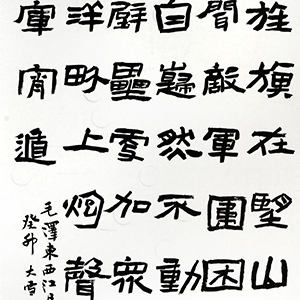 旌旗在望山
聞敵軍圍困
自巋然不動
壁壘更加眾
洋畍上炮聲
軍宵遁
毛澤東西江月
癸卯大雪